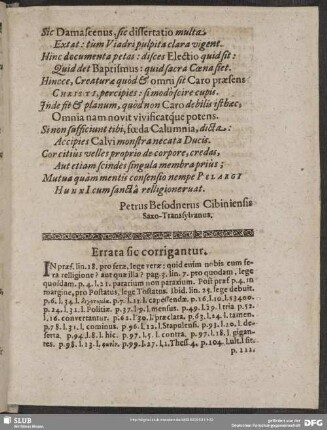 Sic Damascenus, sic dissertatio multa
Extat: tùm Viadri pulpita clara vigent.
Hinc documenta petas: disces Electio quid sit:
Quid det Baptismus: quid sacra Cœna siet.
Hincce, Creatura quòd & omni sit Caro præsens
CHRISTI, percipies: si modò scire cupis.
Inde fit & planum, quòd non Caro debilis isthæc,
Omnia nam novit vivificatque potens.
Si non sufficiunt tibi, fœda Calumnia, dicta:
Accipies Calvi monstra necata Ducis.
Cor citius velles proprio de corpore, credas,
Aut etiam scindes singula membra prius;
Mutua quàm mentis consensio nempe PELARGI
HUNNI cum sanctâ relligione ruat.
Petrus Besodnerus Cibiniensis
Saxo-Transylvanus.
Errata sic corrigantur.
IN præf. lin. 18. pro fera, lege vera: quid enim nobis cum fe-
ra religione? aut quæ illa? pag. 3. lin. 7. pro quodam, lege
quoddam. p. 4. l. 21. pararium non paraxium. Post præf. p. 4. in
margine, pro Postatus, lege Tostatus. Ibid. lin. 25. lege debuit.
p. 6. l. 34. l. p. 7. l. 13. l. capessendæ. p. 16. l. 10. l. 3400.
p. 24. l. 31. l. Politiæ. p. 37. l. 9. l. mensus. p. 49. l. 39. l. tria p. 52.
l. 16. convertantur. p. 62. l. 30. l. præclara. p. 63. l. 24. l. tamen.
p. 78. l. 31. l. cominus. p. 90. l. 12. l. Stapulensis. p. 93. l. 20. l. de-
serta. p. 94. l. 8. l. hic. p. 97. l. 5. l. contra. p. 97. l. 18. l. gigan-
tes. p. 98. l. 13. l. p. 99. l. 27. l. 1. Thess. 4. p. 104. l. ult. l. sit.
p. 111.
SLUB